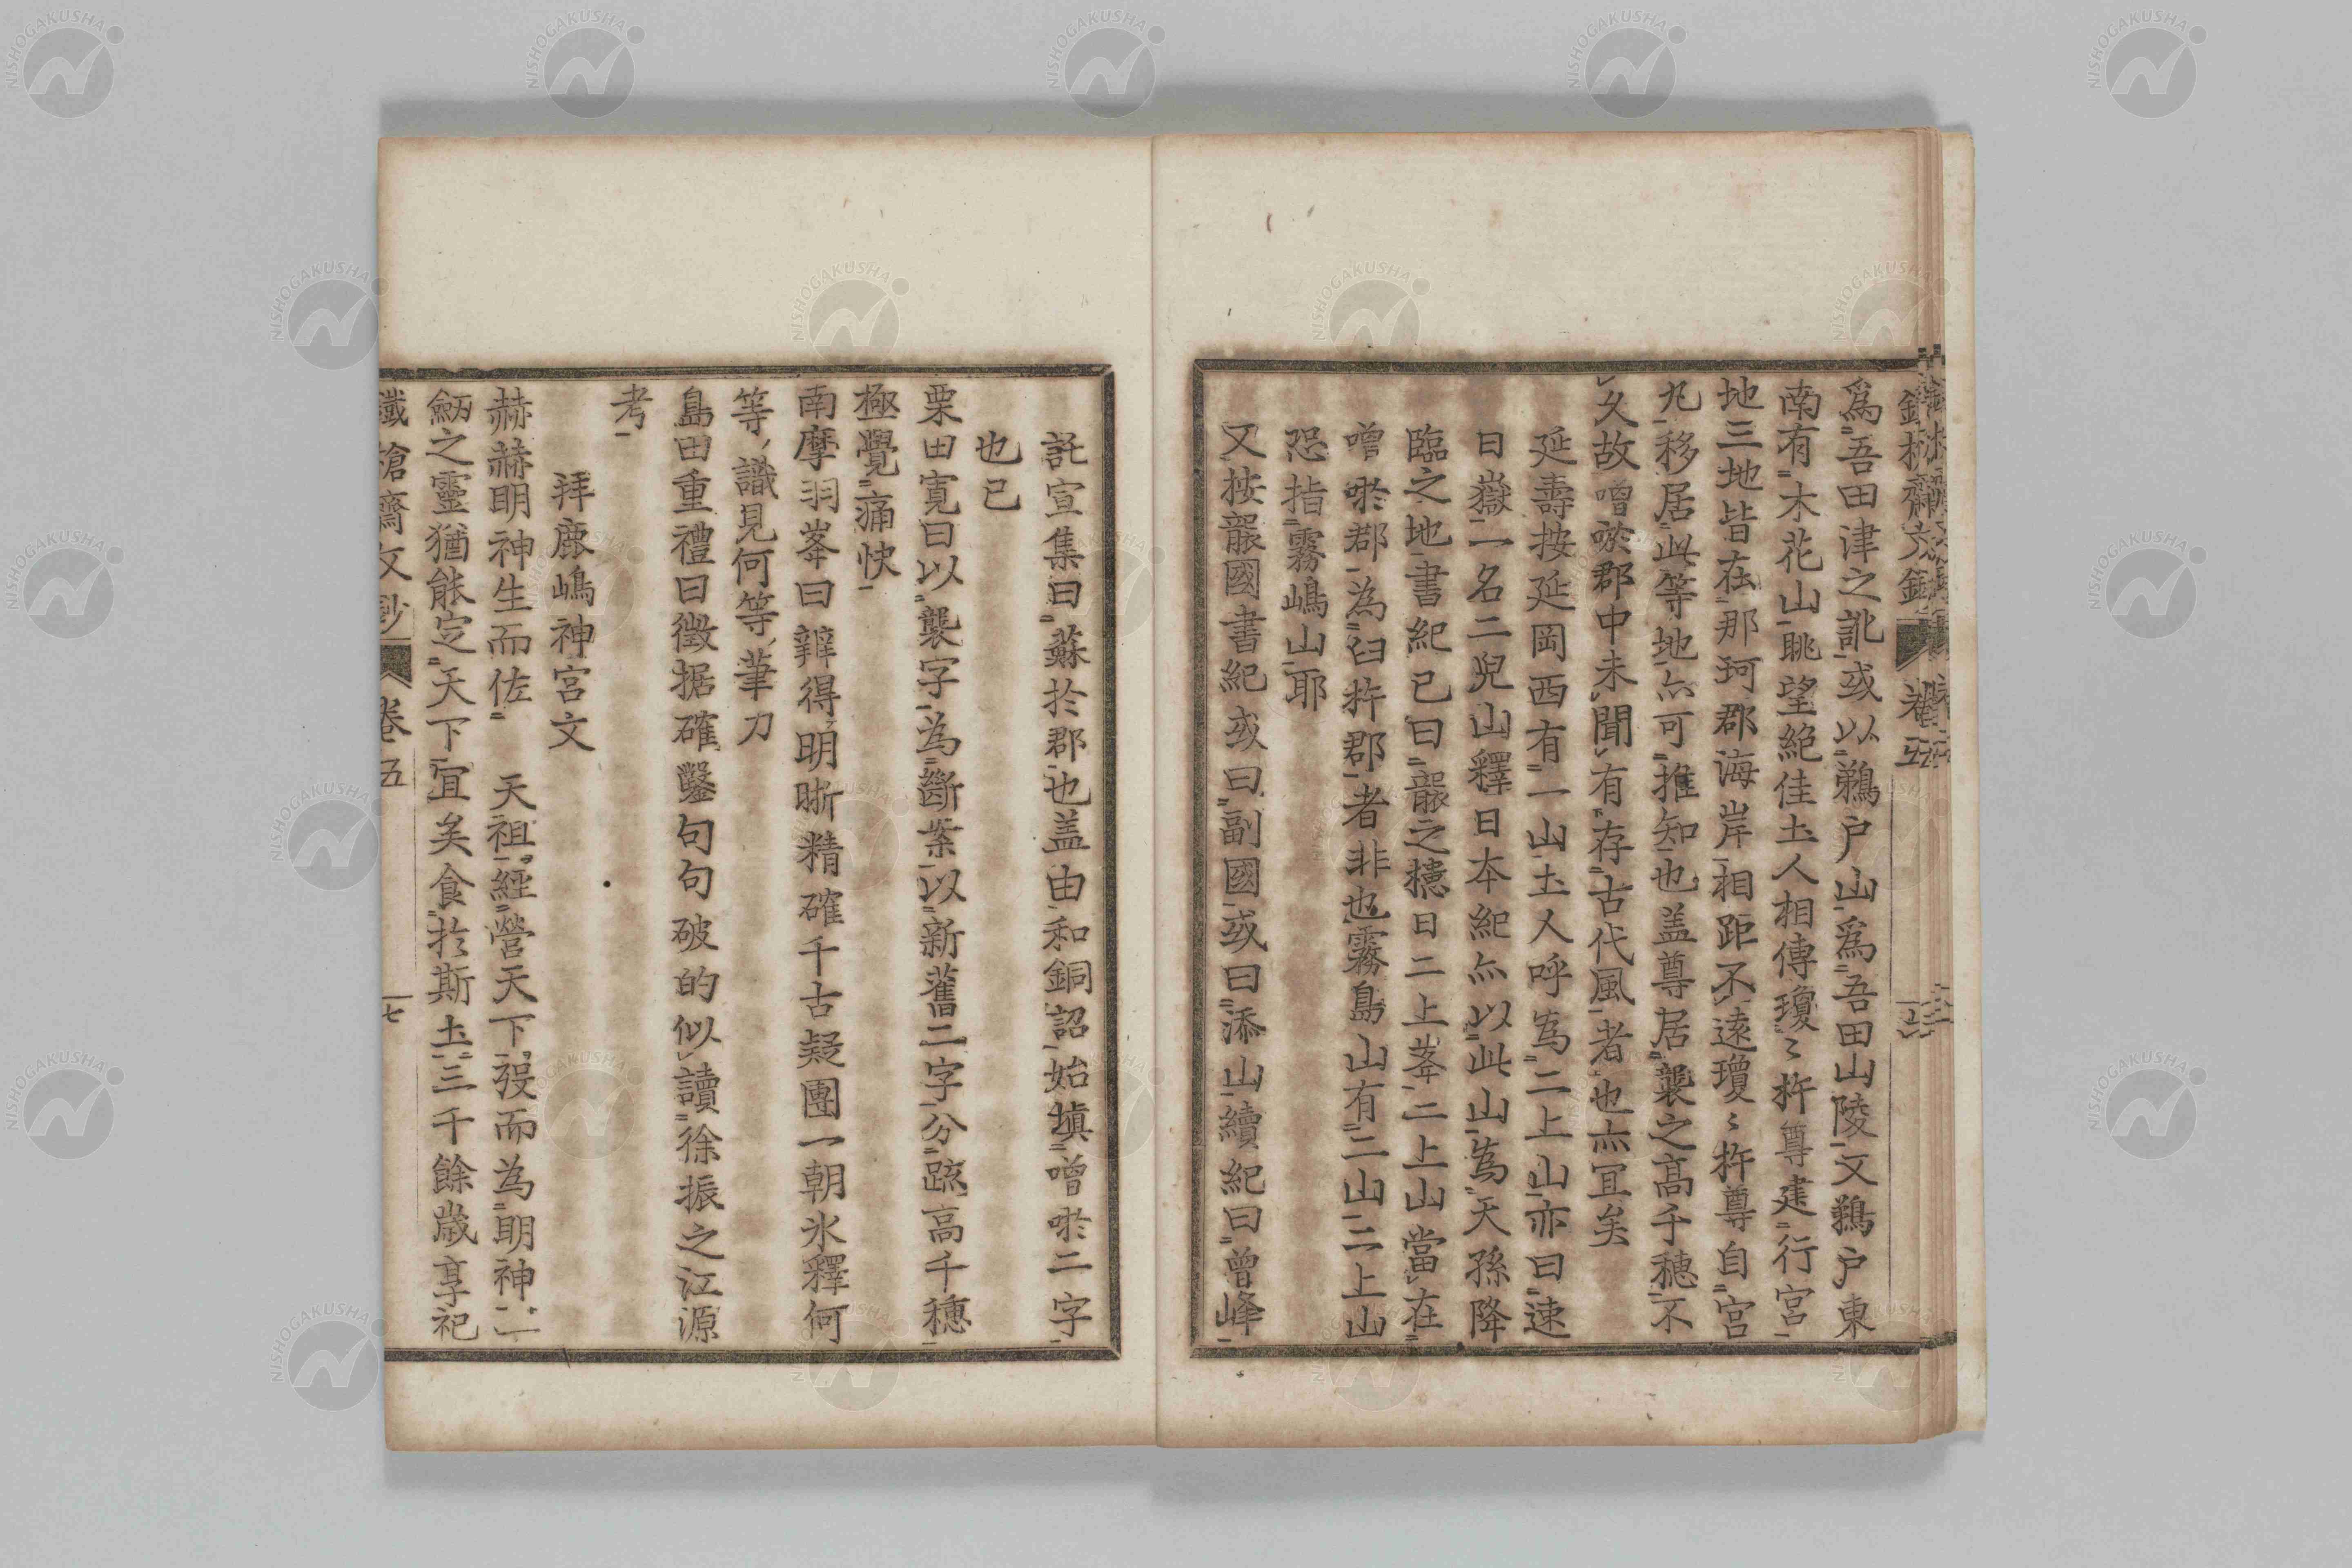 爲吾田津之訛或以鵜户山爲吾田山陵又鵜户東
南有木花山眺望絶佳土人相傳瓊〻杵尊建行宮
地三地皆在那珂郡海岸相距不遠瓊〻杵尊自宮
九移居此等地亦可推知也盖尊居襲之高千穗不
久故噌唹郡中未聞有存古代風者也亦宜矣
延壽按延岡西有一山土人呼爲二上山亦曰速
日嶽一名二兒山釋日本紀亦以此山爲天孫降
臨之地書紀已曰襲之穗日二上峯二上山當在
噌唹郡為臼杵郡者非也霧島山有二山二上山
恐指霧嶋山耶
又按襲國書紀或曰副國或曰添山續紀曰曾峰
託宣集曰蘇於郡也盖由和銅詔始填噌唹二字
也已
栗田寛曰以襲字為斷案以新舊二字分疏高千穗
極覺痛快
南摩羽峯曰辯得明晰精確千古疑團一朝氷釋何
等識見何等筆刀
島田重禮曰徵据確鑿句句破的似讀徐振之江源
考
拜鹿嶋神宮文
赫赫明神生而佐 天祖經營天下殁而為明神一
劒之靈猶能定天下宜矣食於斯土三千餘歳享祀
鐵槍齋文鈔 卷五 一七
NISHOGAKUSHA